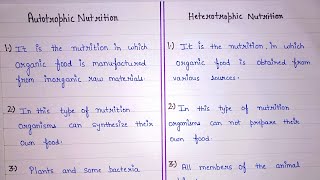 Autotrophic Nutrition
1) It is the nutrition in which
organic food is manufactured
from inorganic raw materials.
2) In this type of nutrition
organisms can synthesize their
own food.
3) Plants and some bacteria
Heterotrophic Nutrition
1) It is the nutrition, in which
organic food is obtained from
various sources.
2) In this type of nutrition
organisms can not prepare their
own food.
3) All members of the animal